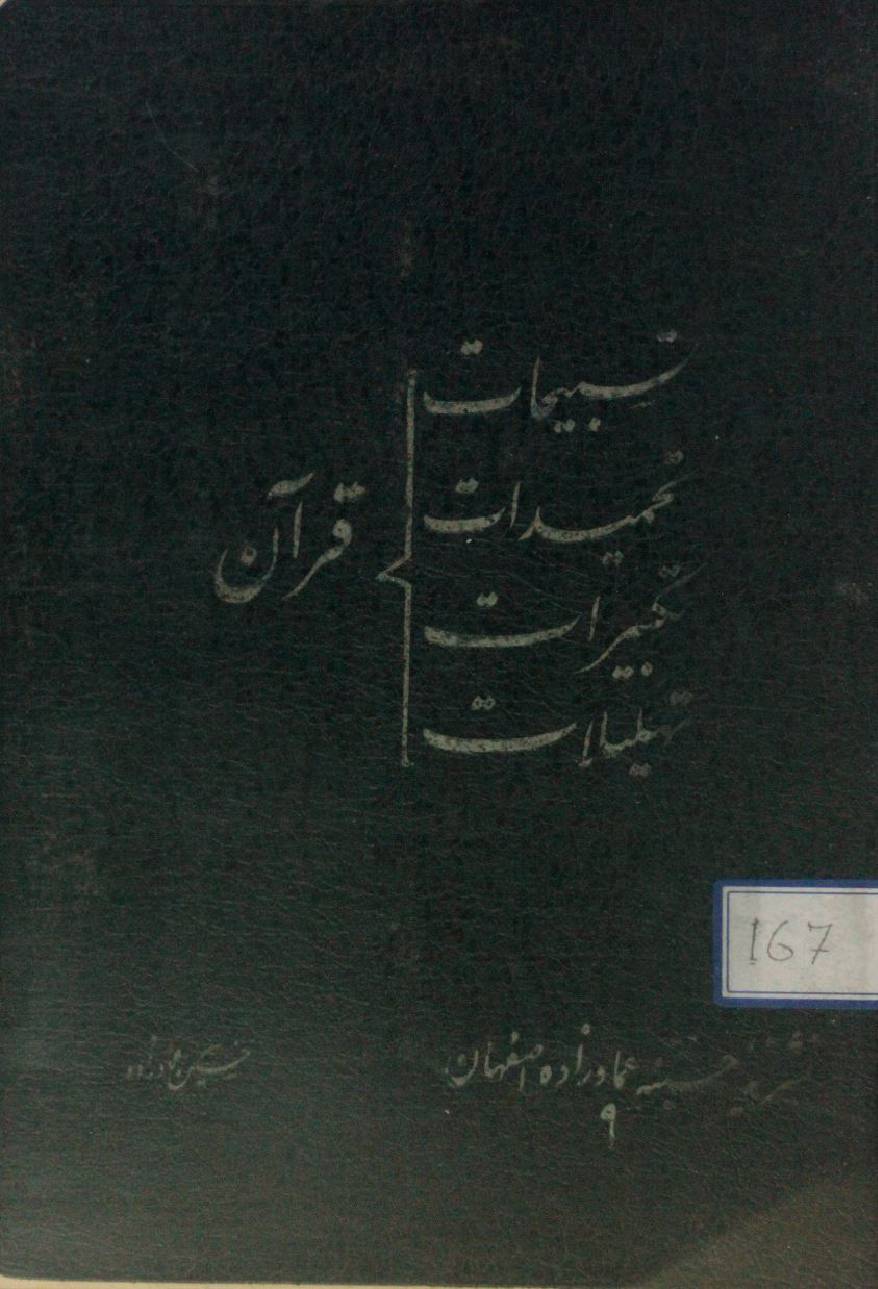 تسبیحات
تحمیدات
تکبیرات
تهلیلات
قرآن
167
نشریه حسینیه عمادزاده اصفهان
۹
حسین عمادزاده